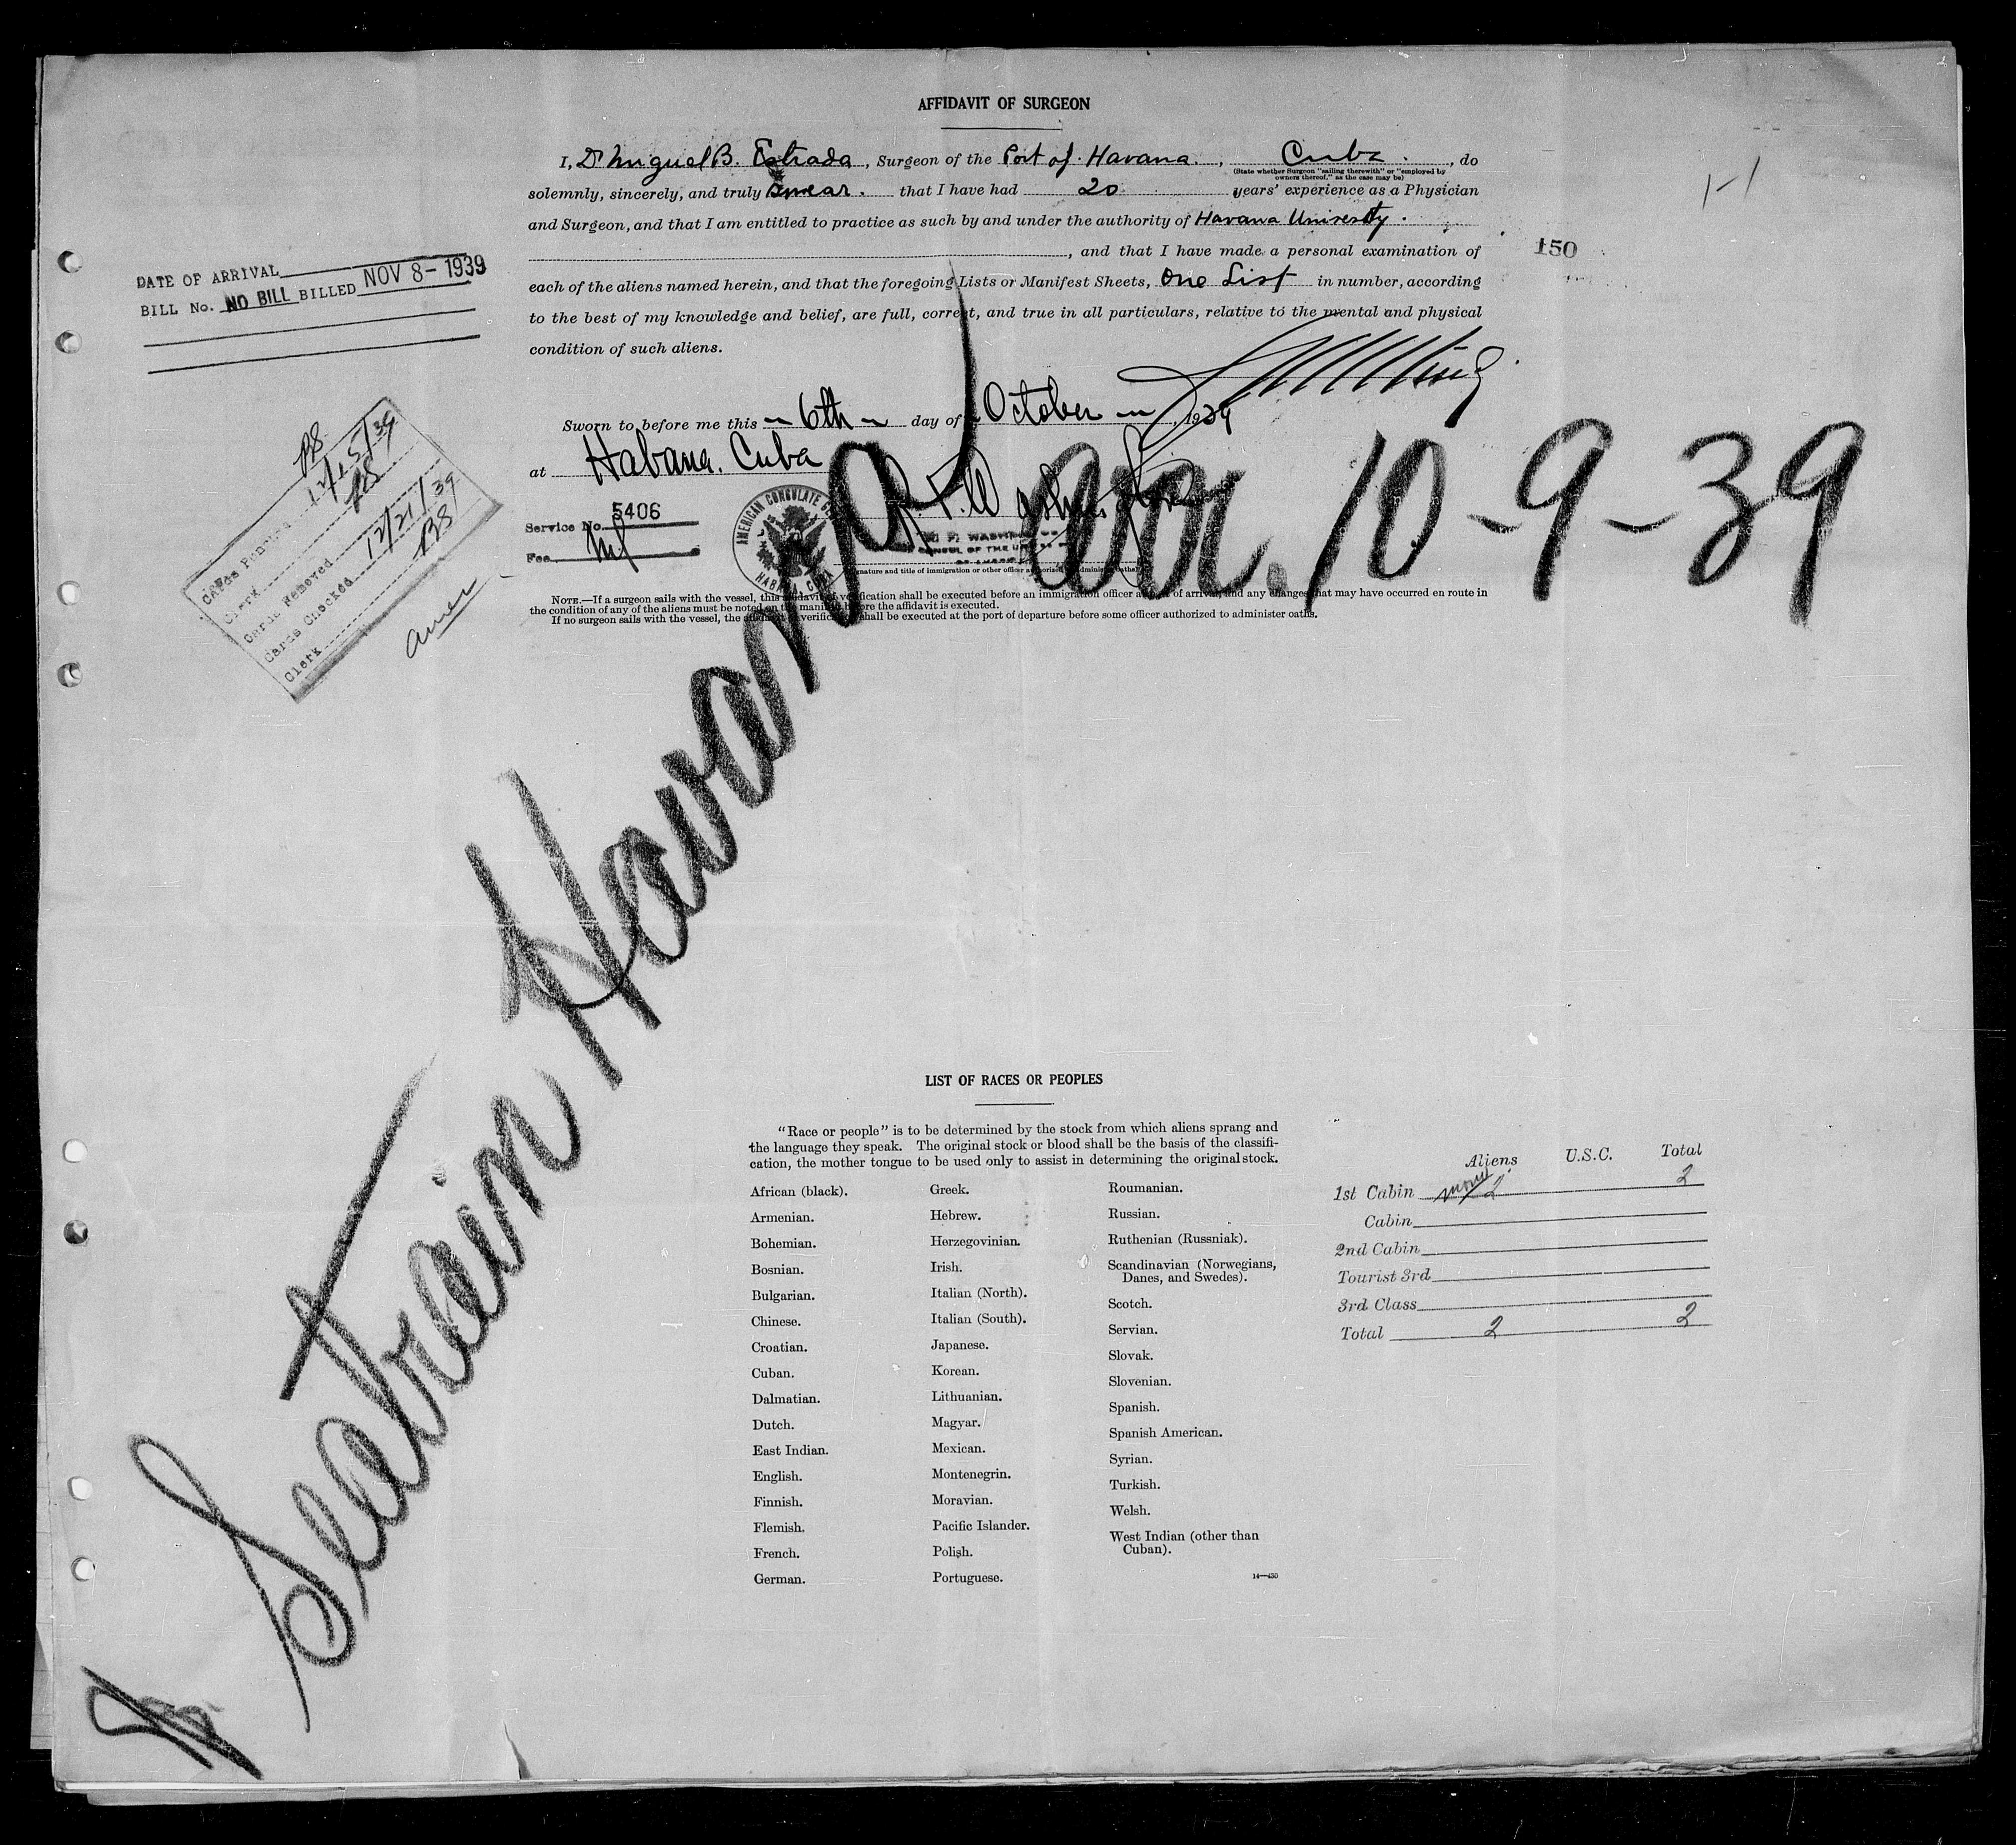 AFFIDAVIT OF SURGEON
I, Dr Miguel B. Estrada, Surgeon of the Port of Havana., Cuba., do
(State whether Surgeon "sailing therewith" or "employed by
owners thereof," as the case may be)
solemnly, sincerely, and truly swear. that I have had 20 years' experience as a Physician
and Surgeon, and that I am entitled to practice as such by and under the authority of Havana University.
, and that I have made a personal examination of
each of the aliens named herein, and that the foregoing Lists or Manifest Sheets, One List in number, according
to the best of my knowledge and belief, are full, correct, and true in all particulars, relative to the mental and physical
condition of such aliens.
1-1
150
DATE OF ARRIVAL NOV 8-1939
BILL No. NO BILL BILLED
Sworn to before me this 6th day of October, 1939
at Habana. Cuba
Service No. 5406
Fee
AMERICAN CONSULATE
HABANA, CUBA
signature and title of immigration or other officer authorized to administer oaths
NOTE.—If a surgeon sails with the vessel, this affidavit of verification shall be executed before an immigration officer at port of arrival, and any changes that may have occurred en route in
the condition of any of the aliens must be noted on the manifest before the affidavit is executed.
If no surgeon sails with the vessel, the affidavit of verification shall be executed at the port of departure before some officer authorized to administer oaths.
Cards Punched 12/15/39
Clerk
Cards Removed
Cards Checked 12/21/39
Clerk
Seatrain Havana
arr. 10-9-39
LIST OF RACES OR PEOPLES
"Race or people" is to be determined by the stock from which aliens sprang and
the language they speak. The original stock or blood shall be the basis of the classifi-
cation, the mother tongue to be used only to assist in determining the original stock.
African (black).
Armenian.
Bohemian.
Bosnian.
Bulgarian.
Chinese.
Croatian.
Cuban.
Dalmatian.
Dutch.
East Indian.
English.
Finnish.
Flemish.
French.
German.
Greek.
Hebrew.
Herzegovinian.
Irish.
Italian (North).
Italian (South).
Japanese.
Korean.
Lithuanian.
Magyar.
Mexican.
Montenegrin.
Moravian.
Pacific Islander.
Polish.
Portuguese.
Roumanian.
Russian.
Ruthenian (Russniak).
Scandinavian (Norwegians,
Danes, and Swedes).
Scotch.
Servian.
Slovak.
Slovenian.
Spanish.
Spanish American.
Syrian.
Turkish.
Welsh.
West Indian (other than
Cuban).
14—430
Aliens U.S.C. Total
1st Cabin 2 2
Cabin
2nd Cabin
Tourist 3rd
3rd Class
Total 2 2